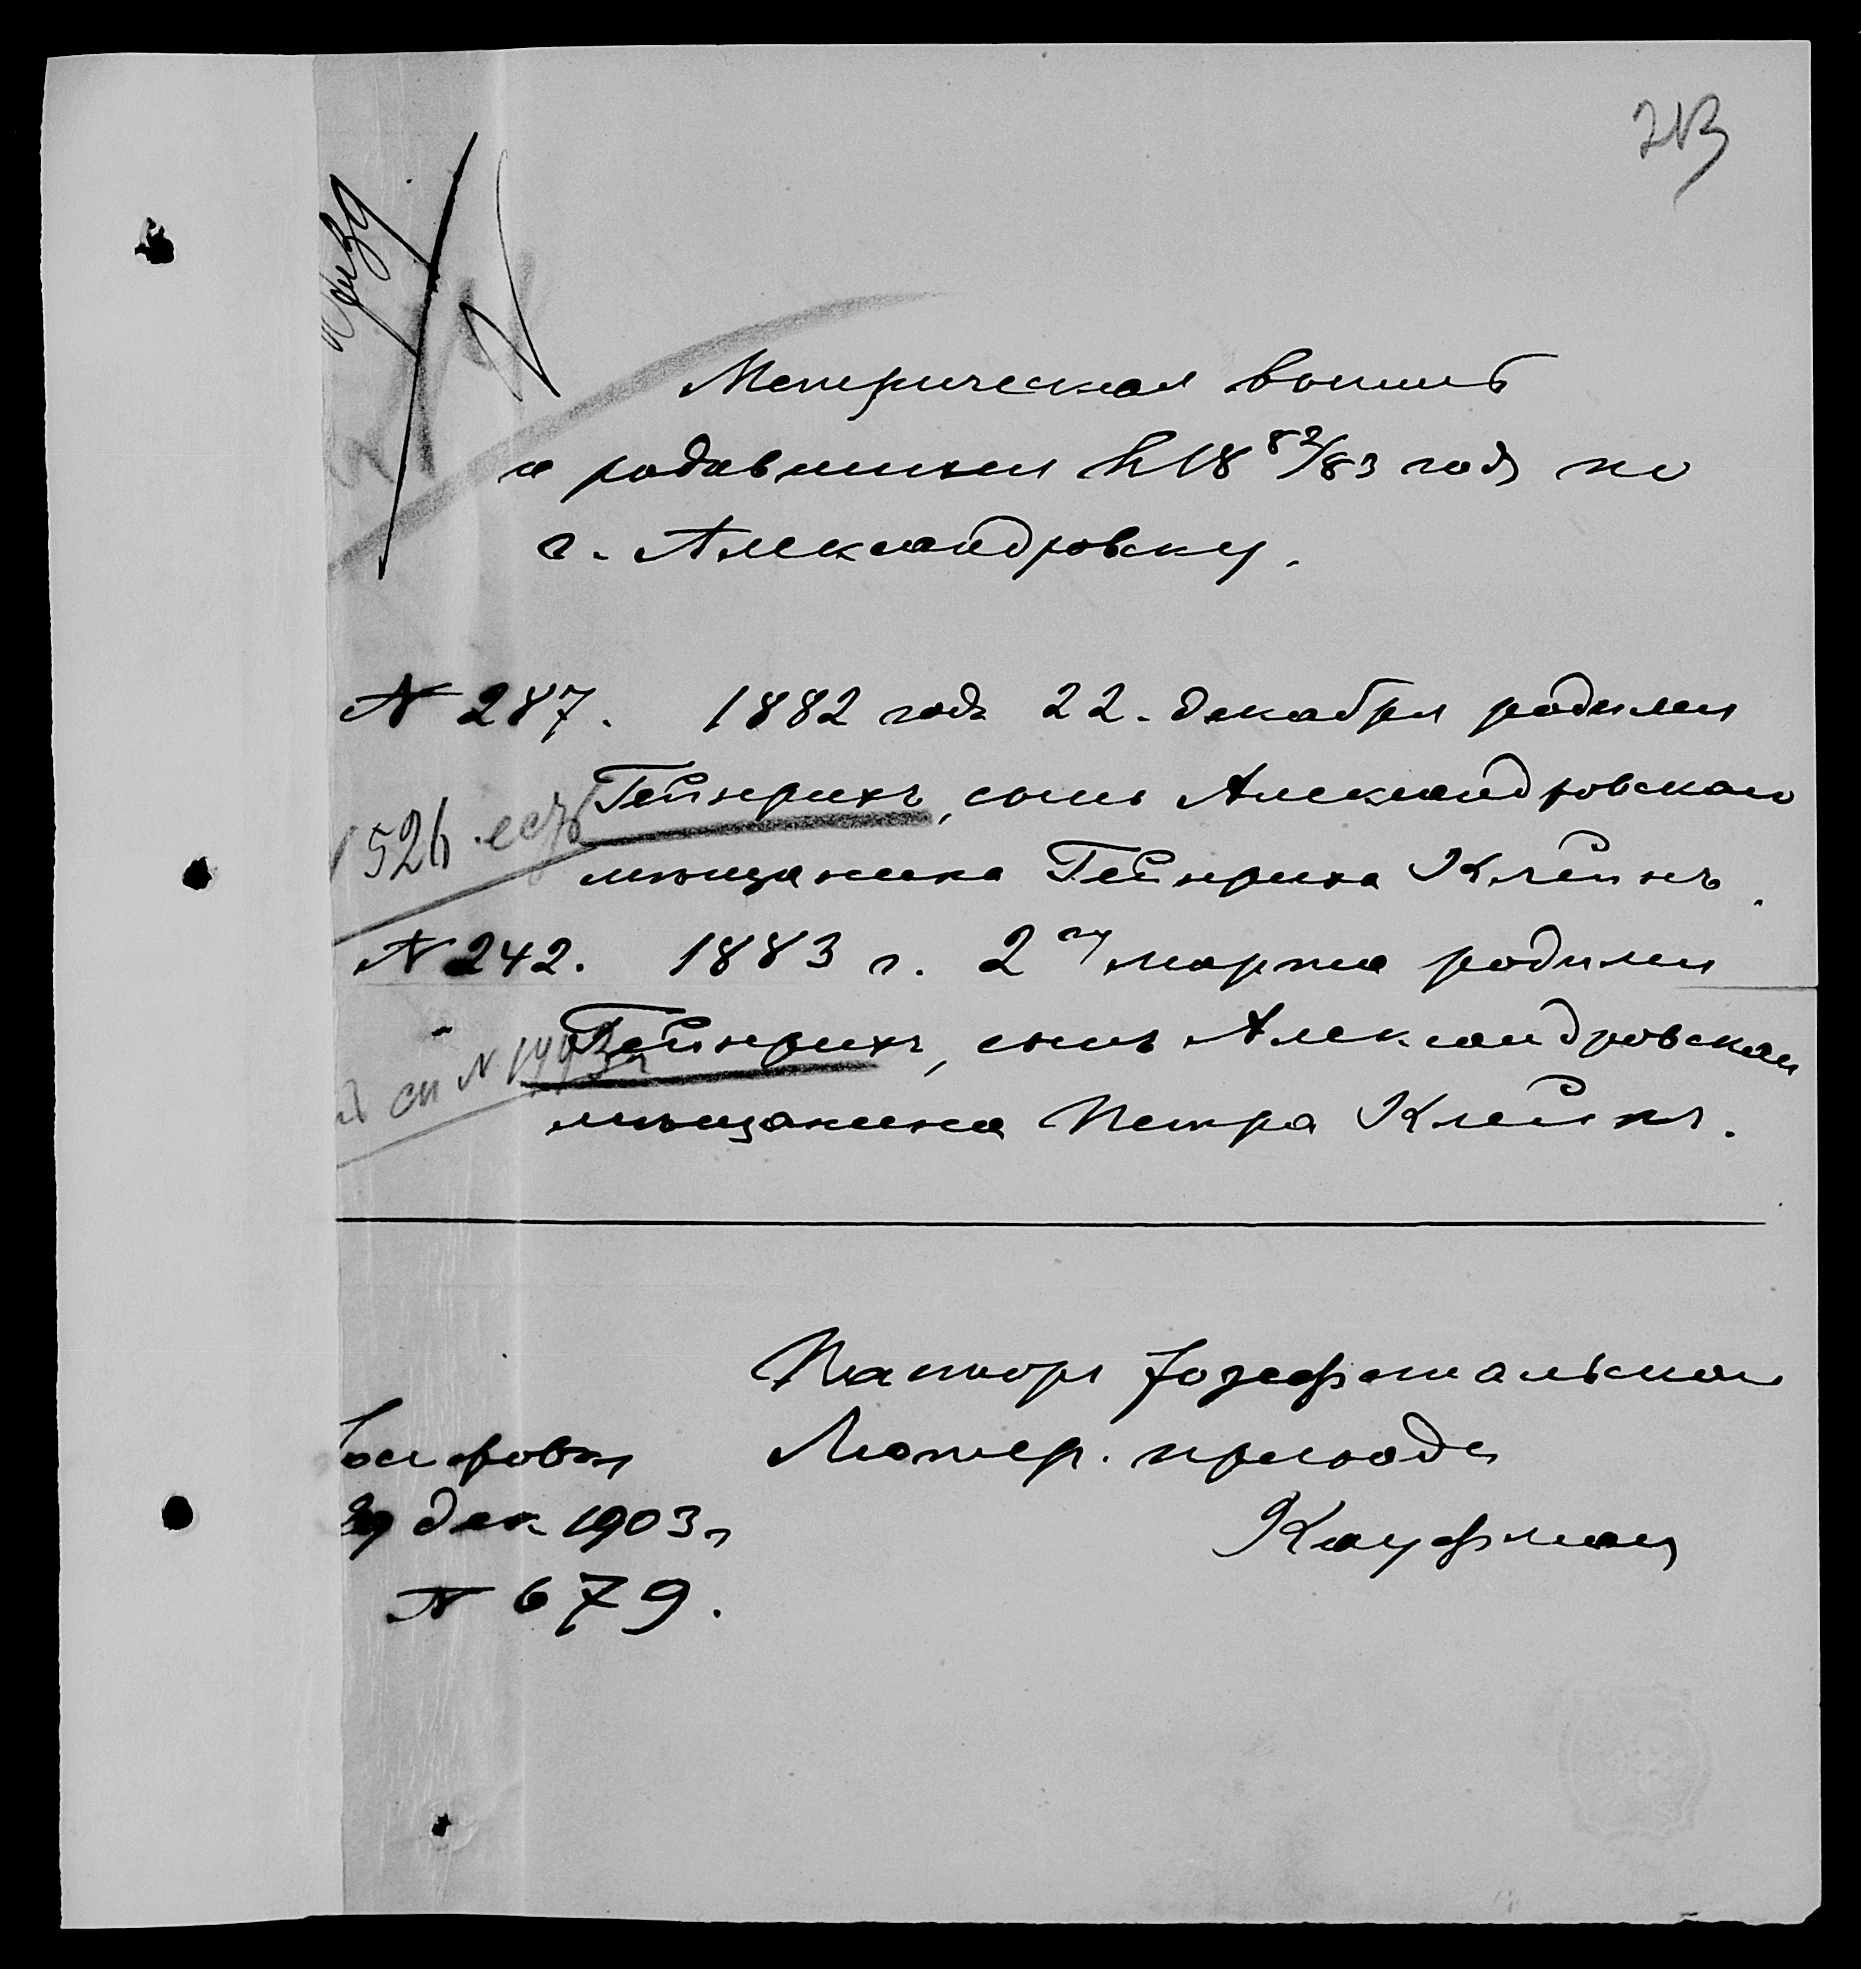 213
Метрическая выпись
о родившихся въ 18 82/83 году по
г. Александровску.
№ 287. 1882 года 22. декабря родился
Гейнрихъ, сынъ Александровскаго
526 есть
мѣщанина Гейнриха Клейнъ.
№ 242. 1883 г. 2го марта родился
Гейнрихъ, сынъ Александровскаго
сп №
мѣщанина Петра Клейнъ.
Пасторъ Іозефстальскаго
Лютер. прихода
дек. 1903 г.
Кауфманъ
№ 679.